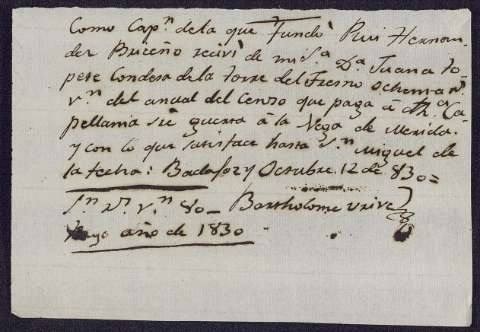 Como Cap.n de la que Fundò Rui Hernan
dez Briceño recivi de mi S.a D.a Juana To
pete Condesa de la Torre del Fresno ochenta r.s
v.n del anual del Censo que paga à dh.a Ca
pellania sre guerta à la Vega de Merida.
y con lo que satisface hasta S.n Miguel de
la fecha: Badajoz y Octubre 12 de 830=
Sn R.s v.n 80_ Bartholome Vrive
año de 1830